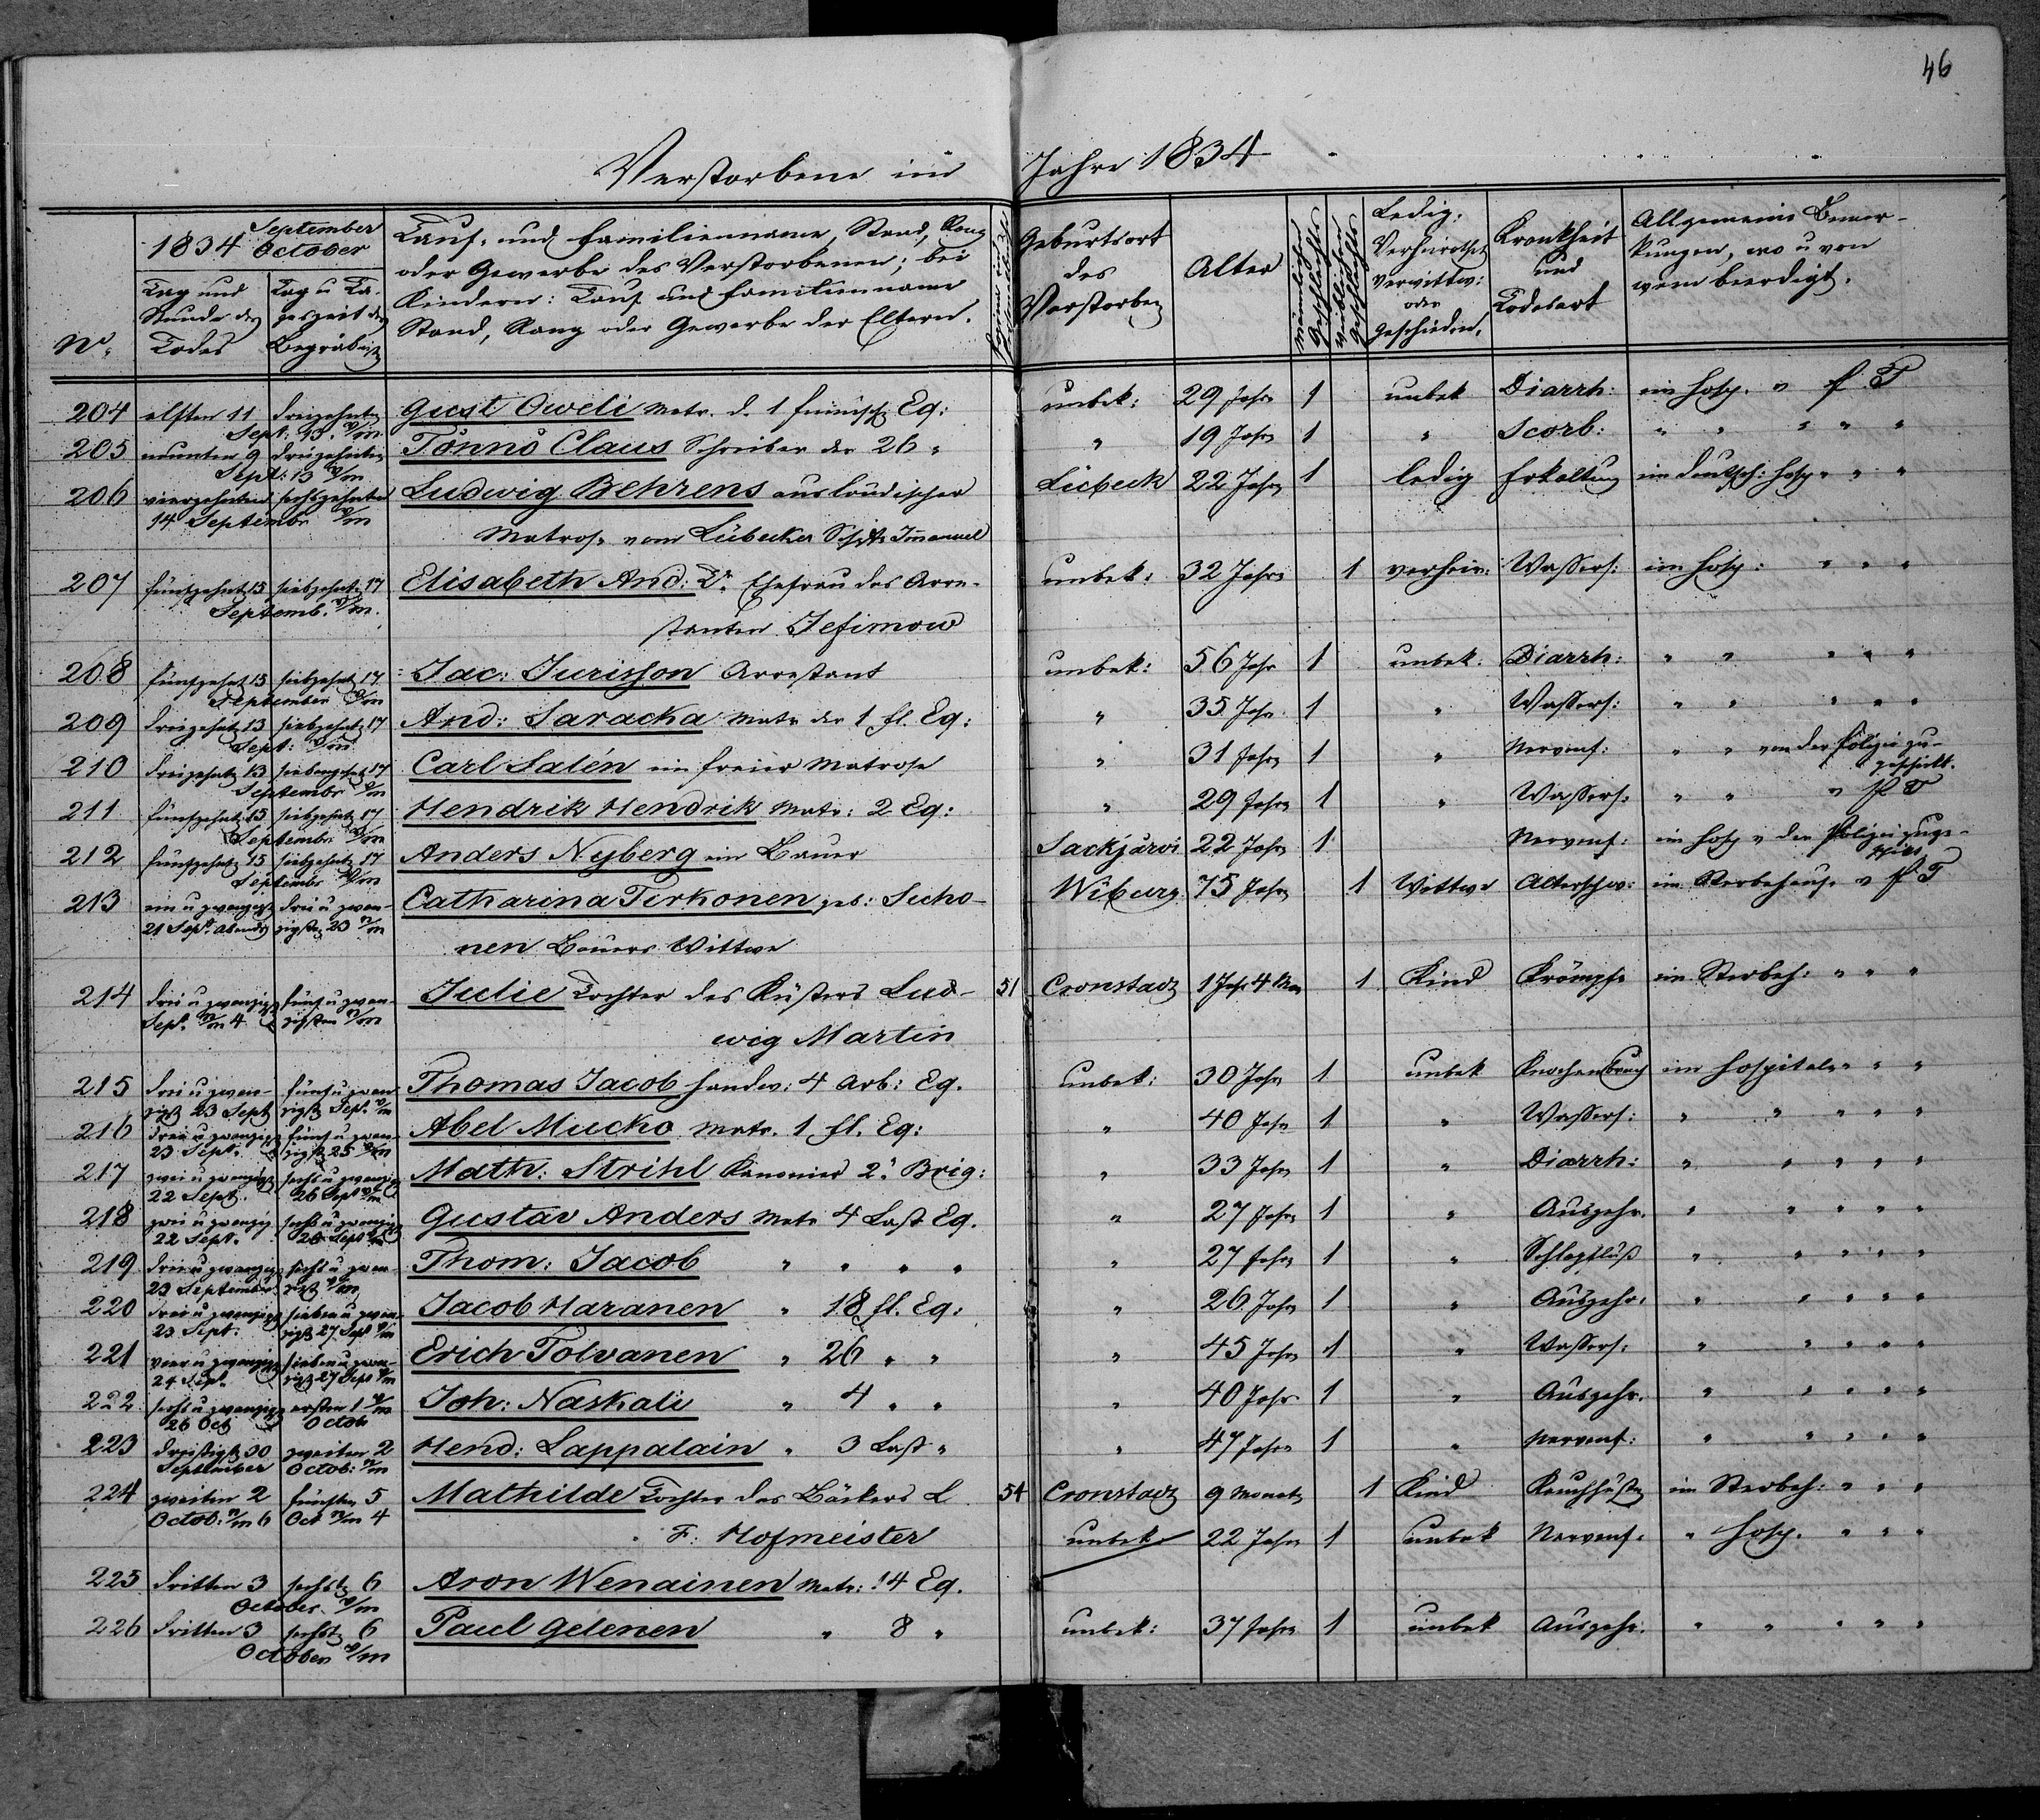 46
Verstorbene im Jahre 1834
1834 September October
No.
Tag und Stunde des Todes
Tag u Tageszeit des Begräbniß
Tauf- und Familienname, Stand, Rang
oder Gewerbe des Verstorbenen; bei
Kindern: Tauf- und Familienname
Stand, Rang oder Gewerbe der Eltern.
Geburtsort des Verstorben
Alter
Männlichen Geschlechts
weiblichen Geschlechts
Ledig, Verheirathet verwittw: oder geschieden.
Krankheit und Todesart
Allgemeine Bemerkungen, wo u von wem beerdigt.
204 elften 11 Sept: dreizehnten 13. V/m Gust Oweli Matr. d. 1 finnisch Eq: unbek: 29 Jahr 1 unbek Diarrh: im Hosp. v P T
205 neunten 9 Sept: dreizehnten 13 V/m Tönnö Claus Schreiber der 26 " " 19 Jahr 1 " Scorb: " " " " "
206 vierzehnten 14 Septembr sechszehnten V/m Ludwig Behrens ausländischer Lübeck 22 Jahr 1 ledig Erkältung im deutsch: Hosp " " "
Matrose vom Lübecker Schiffe Immanuel
207 fünfzehnt 15 siebzehnt 17 Septemb. V/m. Elisabeth And: Tr. Ehefrau des Arre- unbek: 32 Jahr 1 verheir: Wassers: im Hosp: " " "
stanten Jefimow
208 fünfzehnt 15 siebzehnt 17 September V/m Jac: Jurisson Arrestant unbek: 56 Jahr 1 unbek. Diarrh: " " " " "
209 dreizehnt 13 siebzehnt 17 Sept: V/m And: Saracka Matr der 1 fl. Eq: " 35 Jahr 1 " Wassers: " " " " "
210 dreizehnt 13 siebenzehnt 17 Septembr V/m Carl Salén ein freier Matrose " 31 Jahr 1 " Nervenf: " " von der Polizei zu-
geschickt.
211 fünfzehnt 15 siebzehnt 17 Septembr V/m Hendrik Hendrik Matr: 2 Eq: " 29 Jahr 1 " Wassers: " " v P T
212 fünfzehnt 15 siebzehnt 17 Septembr V/m Anders Nyberg ein Bauer Sackjärwi 22 Jahr 1 Nervenf: im Hosp v der Polizei zuge-
schickt
213 ein u zwanzigst 21 Sept. Abends drei u zwanzigsten 23 V/m Catharina Tirkonen geb: Sucho- Wiburg 75 Jahr 1 Wittwe Altersschw: im Sterbehause v P T
nen Bauers Wittwe
214 drei u zwanzigst Sept. N/m 4 fünf u zwanzigsten N/m Julie Tochter des Küsters Lud- 51 Cronstadt 1 Jahr 4 Mon 1 Kind Krämpfe im Sterbeh: " " "
wig Martin
215 drei u zwanzigst 23 Sept fünf u zwanzigst Sept. V/m Thomas Jacob Handw: 4 Arb: Eq. unbek: 30 Jahr 1 unbek Knochenbruch im Hospital " " "
216 drei u zwanzigst 23 Sept. fünf u zwanzigst 25 V/m Abel Mucko Matr. 1 fl. Eq: " 40 Jahr 1 " Wassers: " " " " "
217 zwei u zwanzigst 22 Sept. sechs u zwanzig 26 Sept V/m Math: Strihl Kanonier 2. Brig: " 33 Jahr 1 " Diarrh: " " " " "
218 zwei u zwanzig 22 Sept. sechs u zwanzig 26 Sept V/m Gustav Anders Matr 4 Last Eq. " 27 Jahr 1 " Auszehr. " " " " "
219 drei u zwanzigst 23 September sechs u zwanzigst V/m Thom: Jacob " " " " " 27 Jahr 1 " Schlagfluß " " " " "
220 drei u zwanzigst 23 Sept. sieben u zwanzigst 27 Sept V/m Jacob Haranen " 18 fl. Eq: " 26 Jahr 1 " Auszehr: " " " " "
221 vier u zwanzigst 24 Sept. sieben u zwanzigst 27 Sept V/m Erich Tolvanen " 26 " " " 45 Jahr 1 " Wassers: " " " " "
222 sechs u zwanzigst 26 Oct ersten 1 V/m Octob Joh: Naskali " 4 " " " 40 Jahr 1 " Auszehr. " " " " "
223 dreißigst 30 September zweiten 2 Octob: V/m Hend: Lappalain " 3 Last " " 47 Jahr 1 " Nervenf: " " " " "
224 zweiten 2 Octob: N/m 6 fünften 5 Oct N/m 4 Mathilde Tochter des Bäckers L. 54 Cronstadt 9 Monat 1 Kind Keuchhusten im Sterbeh: " " "
F. Hofmeister unbek 22 Jahr 1 unbek Nervenf. " Hosp. " " "
225 dritten 3 sechst 6 October V/m Aron Wenainen Matr: 14 Eq.
226 dritten 3 sechst 6 October V/m Paul Gelenen " 8 " unbek: 37 Jahr 1 unbek Auszehr. " " " " "